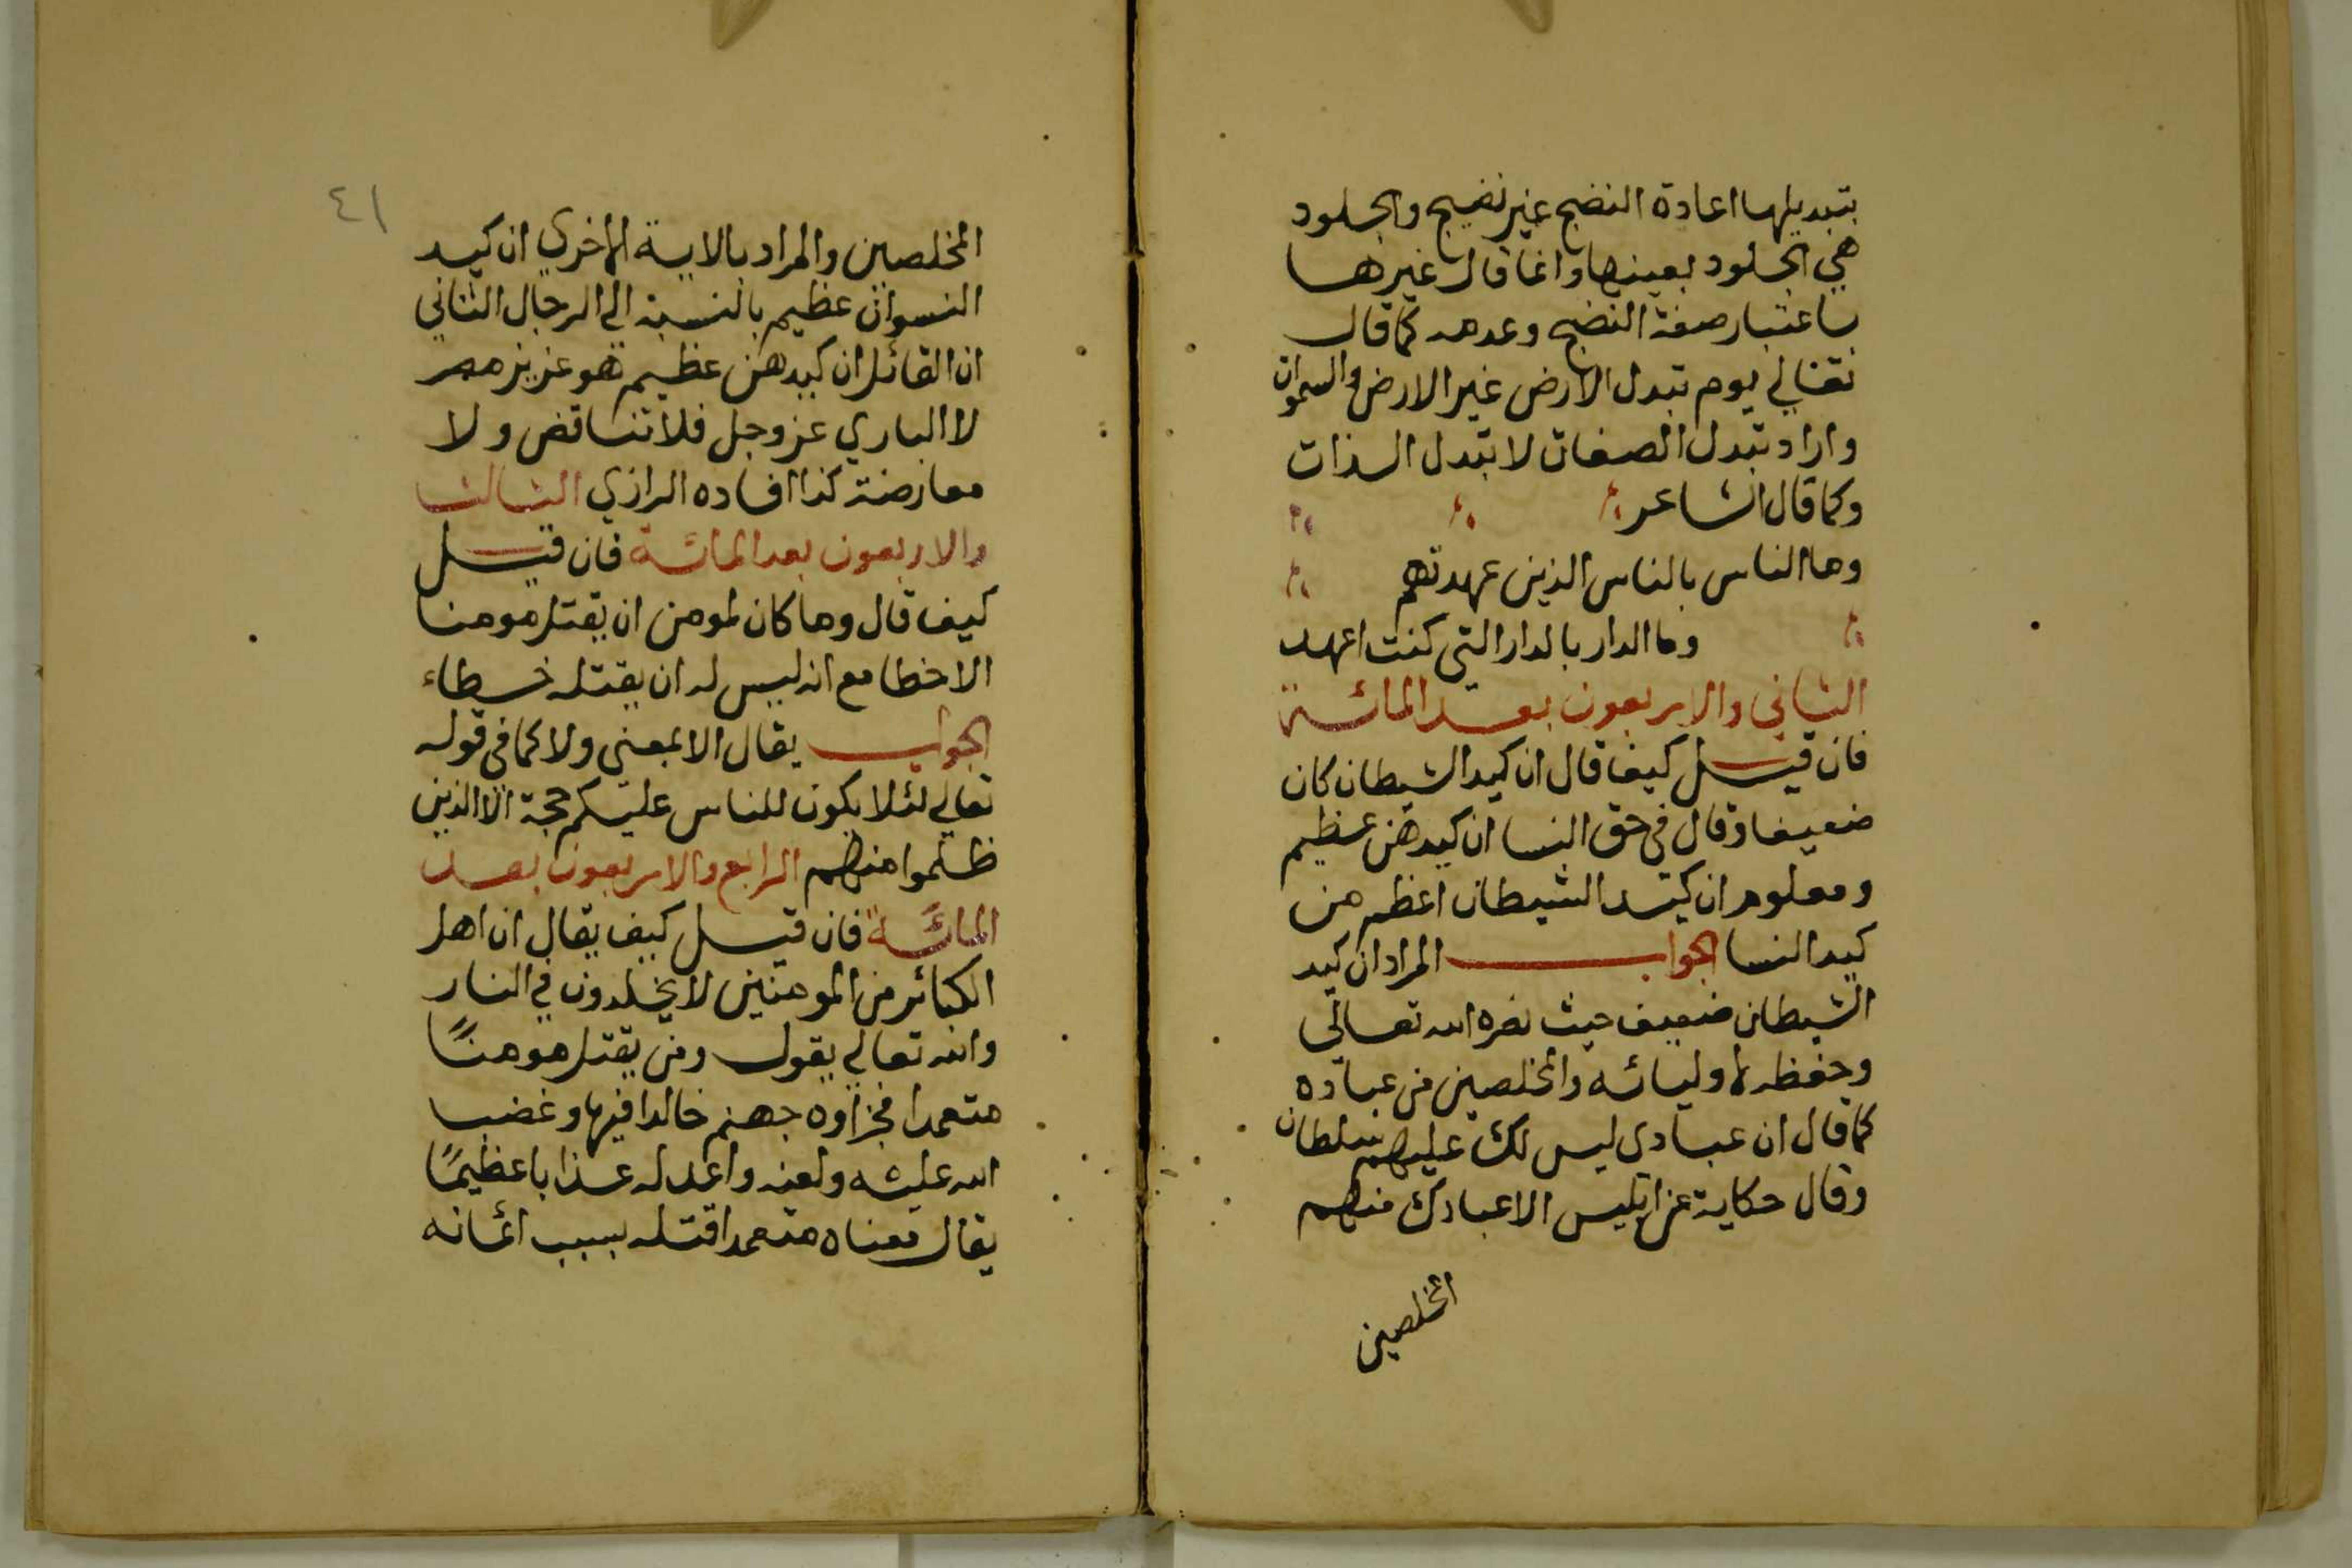 بتبديلها اعادة النضج غير نضيج والجلود
هي الجلود بعينها وانما قال غيرها
باعتبار صفة النضج وعدمه كما قال
تعالي يوم تبدل الارض غير الارض والسموات
واراد تبدل الصفات لا تبدل الذات
وكما قال الشاعر
وما الناس بالناس الذين عهدتهم
وما الدار بالدار التي كنت اعهد
الثاني والاربعون بعد المائة
فان قيل كيف قال ان كيد الشيطان كان
ضعيفا وقال في حق النسا ان كيدهن عظيم
ومعلوم ان كيد الشيطان اعظم من
كيد النسا الجواب المراد ان كيد
الشيطان ضعيف حيث نصره الله تعالى
وحفظه لاوليائه والمخلصين من عباده
كما قال ان عبادى ليس لك عليهم سلطان
وقال حكاية عن ابليس الا عبادك منهم
المخلصين
٤١
المخلصين والمراد بالاية الاخري ان كيد
النسوان عظيم بالنسبة الي الرجال الثاني
ان القائل ان كيدهن عظيم هو عزيز مصر
لا الباري عز وجل فلا تناقض ولا
معارضة كذا افاده الرازي الثالث
والاربعون بعد المائة فان قيل
كيف قال وما كان لمومن ان يقتل مومنا
الا خطا مع انه ليس له ان يقتله خطاء
الجواب يقال الا بمعنى ولا كما في قوله
تعالي لئلا يكون للناس عليكم حجة الا الذين
ظلموا منهم الرابع والاربعون بعد
المائة فان قيل كيف يقال ان اهل
الكبائر من المومنين لا يخلدون في النار
والله تعالي يقول ومن يقتل مومنًا
متعمدا فجزاوه جهنم خالدا فيها وغضب
الله عليه ولعنه واعد له عذابا عظيمًا
يقال معناه متعمدا قتله بسبب ايمانه